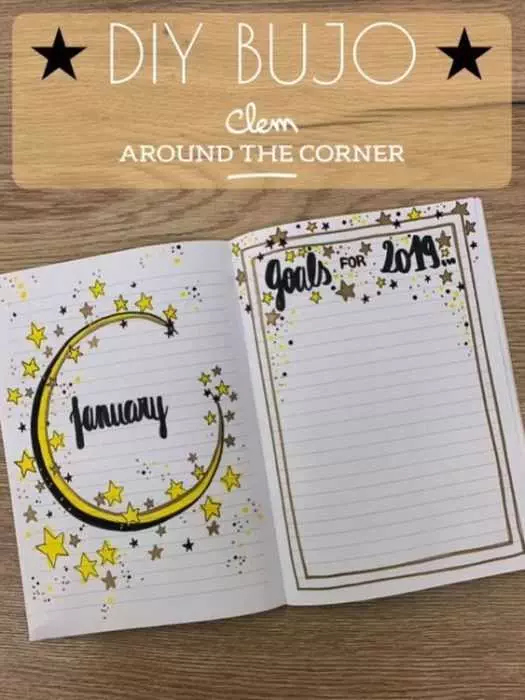 DIY BUJO
Clem
AROUND THE CORNER
January
goals FOR 2019...